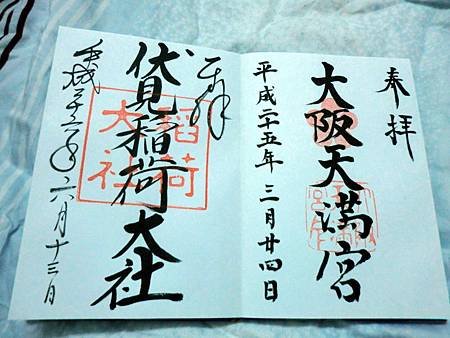 奉拝
大阪天満宮
平成二十五年三月廿四日
奉拝
伏見稲荷大社
稲荷大社
平成二十六年六月十三日